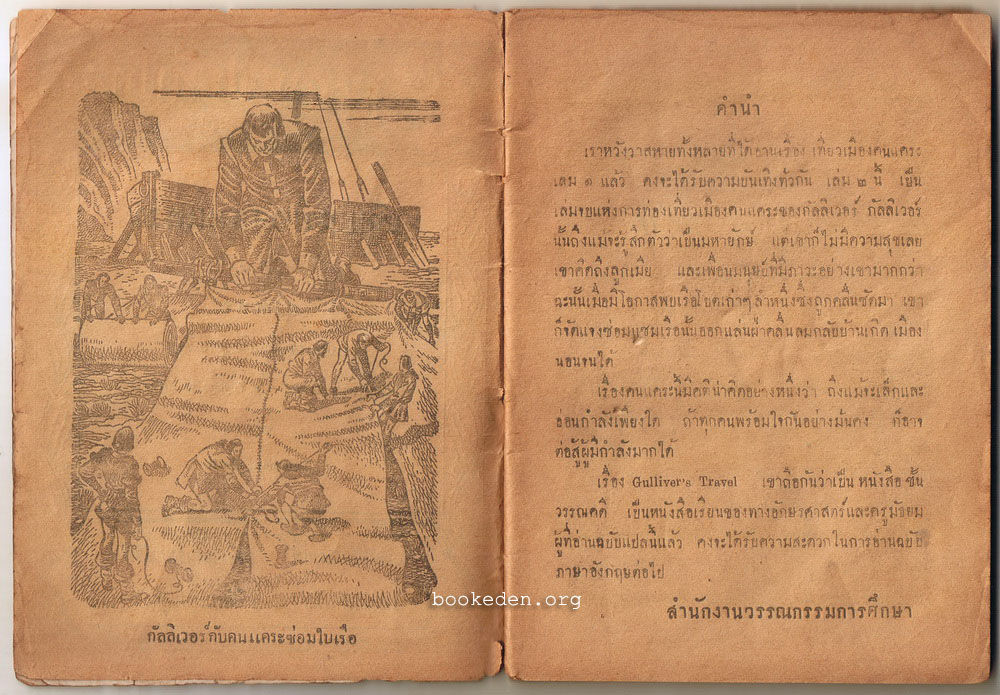 กัลลิเวอร์กับคนแคระซ่อมใบเรือ
คำนำ
เราหวังว่าสหายทั้งหลายที่ได้อ่านเรื่อง เที่ยวเมืองคนแคระ
เล่ม ๑ แล้ว คงจะได้รับความบันเทิงทั่วกัน เล่ม ๒ นี้ เป็น
เล่มจบแห่งการท่องเที่ยวเมืองคนแคระของกัลลิเวอร์ กัลลิเวอร์
นั้นถึงแม้จะรู้สึกตัวว่าเป็นมหายักษ์ แต่เขาก็ไม่มีความสุขเลย
เขาคิดถึงลูกเมีย และเพื่อนมนุษย์ที่มีภาวะอย่างเขามากกว่า
ฉะนั้นเมื่อมีโอกาสพบเรือโบตเก่าๆ ลำหนึ่งซึ่งถูกคลื่นซัดมา เขา
ก็จัดแจงซ่อมแซมเรือนั้นออกแล่นฝ่าคลื่นลมกลับบ้านเกิด เมือง
นอนจนได้
เรื่องคนแคระนี้มีคติน่าคิดอย่างหนึ่งว่า ถึงแม้จะเล็กและ
อ่อนกำลังเพียงใด ถ้าทุกคนพร้อมใจกันอย่างมั่นคง ก็อาจ
ต่อสู้ผู้มีกำลังมากได้
เรื่อง Gulliver's Travel เขาถือกันว่าเป็น หนังสือ ชั้น
วรรณคดี เป็นหนังสือเรียนของทางอักษรศาสตร์และครูมัธยม
ผู้ที่อ่านฉบับแปลนี้แล้ว คงจะได้รับความสะดวกในการอ่านฉบับ
ภาษาอังกฤษต่อไป
สำนักงานวรรณกรรมการศึกษา
bookeden.org